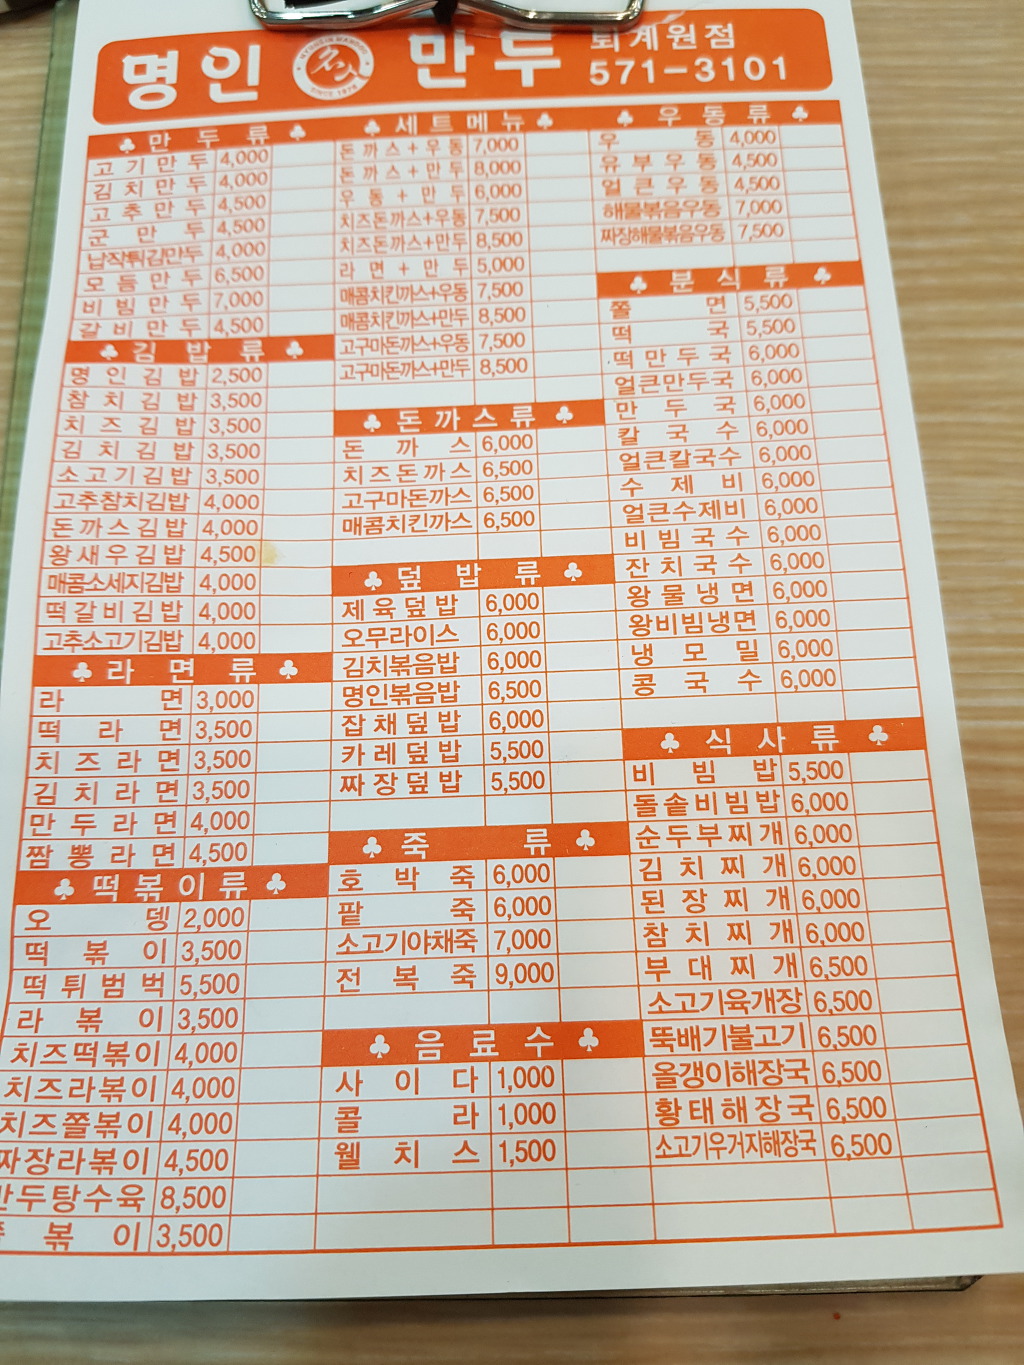 명인 만두 퇴계원점
571-3101
만두류
고기만두 4,000
김치만두 4,000
고추만두 4,500
군만두 4,500
납작튀김만두 4,000
모듬만두 6,500
비빔만두 7,000
갈비만두 4,500
김밥류
명인김밥 2,500
참치김밥 3,500
치즈김밥 3,500
김치김밥 3,500
소고기김밥 3,500
고추참치김밥 4,000
돈까스김밥 4,000
왕새우김밥 4,500
매콤소세지김밥 4,000
떡갈비김밥 4,000
고추소고기김밥 4,000
라면류
라면 3,000
떡라면 3,500
치즈라면 3,500
김치라면 3,500
만두라면 4,000
짬뽕라면 4,500
떡볶이류
오뎅 2,000
떡볶이 3,500
떡튀범벅 5,500
라볶이 3,500
치즈떡볶이 4,000
치즈라볶이 4,000
치즈쫄볶이 4,000
짜장라볶이 4,500
만두탕수육 8,500
볶이 3,500
세트메뉴
돈까스+우동 7,000
돈까스+만두 8,000
우동+만두 6,000
치즈돈까스+우동 7,500
치즈돈까스+만두 8,500
라면+만두 5,000
매콤치킨까스+우동 7,500
매콤치킨까스+만두 8,500
고구마돈까스+우동 7,500
고구마돈까스+만두 8,500
돈까스류
돈까스 6,000
치즈돈까스 6,500
고구마돈까스 6,500
매콤치킨까스 6,500
덮밥류
제육덮밥 6,000
오무라이스 6,000
김치볶음밥 6,000
명인볶음밥 6,500
잡채덮밥 6,000
카레덮밥 5,500
짜장덮밥 5,500
죽류
호박죽 6,000
팥죽 6,000
소고기야채죽 7,000
전복죽 9,000
음료수
사이다 1,000
콜라 1,000
웰치스 1,500
우동류
우동 4,000
유부우동 4,500
얼큰우동 4,500
해물볶음우동 7,000
짜장해물볶음우동 7,500
분식류
쫄면 5,500
떡국 5,500
떡만두국 6,000
얼큰만두국 6,000
만두국 6,000
칼국수 6,000
얼큰칼국수 6,000
수제비 6,000
얼큰수제비 6,000
비빔국수 6,000
잔치국수 6,000
왕물냉면 6,000
왕비빔냉면 6,000
냉모밀 6,000
콩국수 6,000
식사류
비빔밥 5,500
돌솥비빔밥 6,000
순두부찌개 6,000
김치찌개 6,000
된장찌개 6,000
참치찌개 6,000
부대찌개 6,500
소고기육개장 6,500
뚝배기불고기 6,500
올갱이해장국 6,500
황태해장국 6,500
소고기우거지해장국 6,500